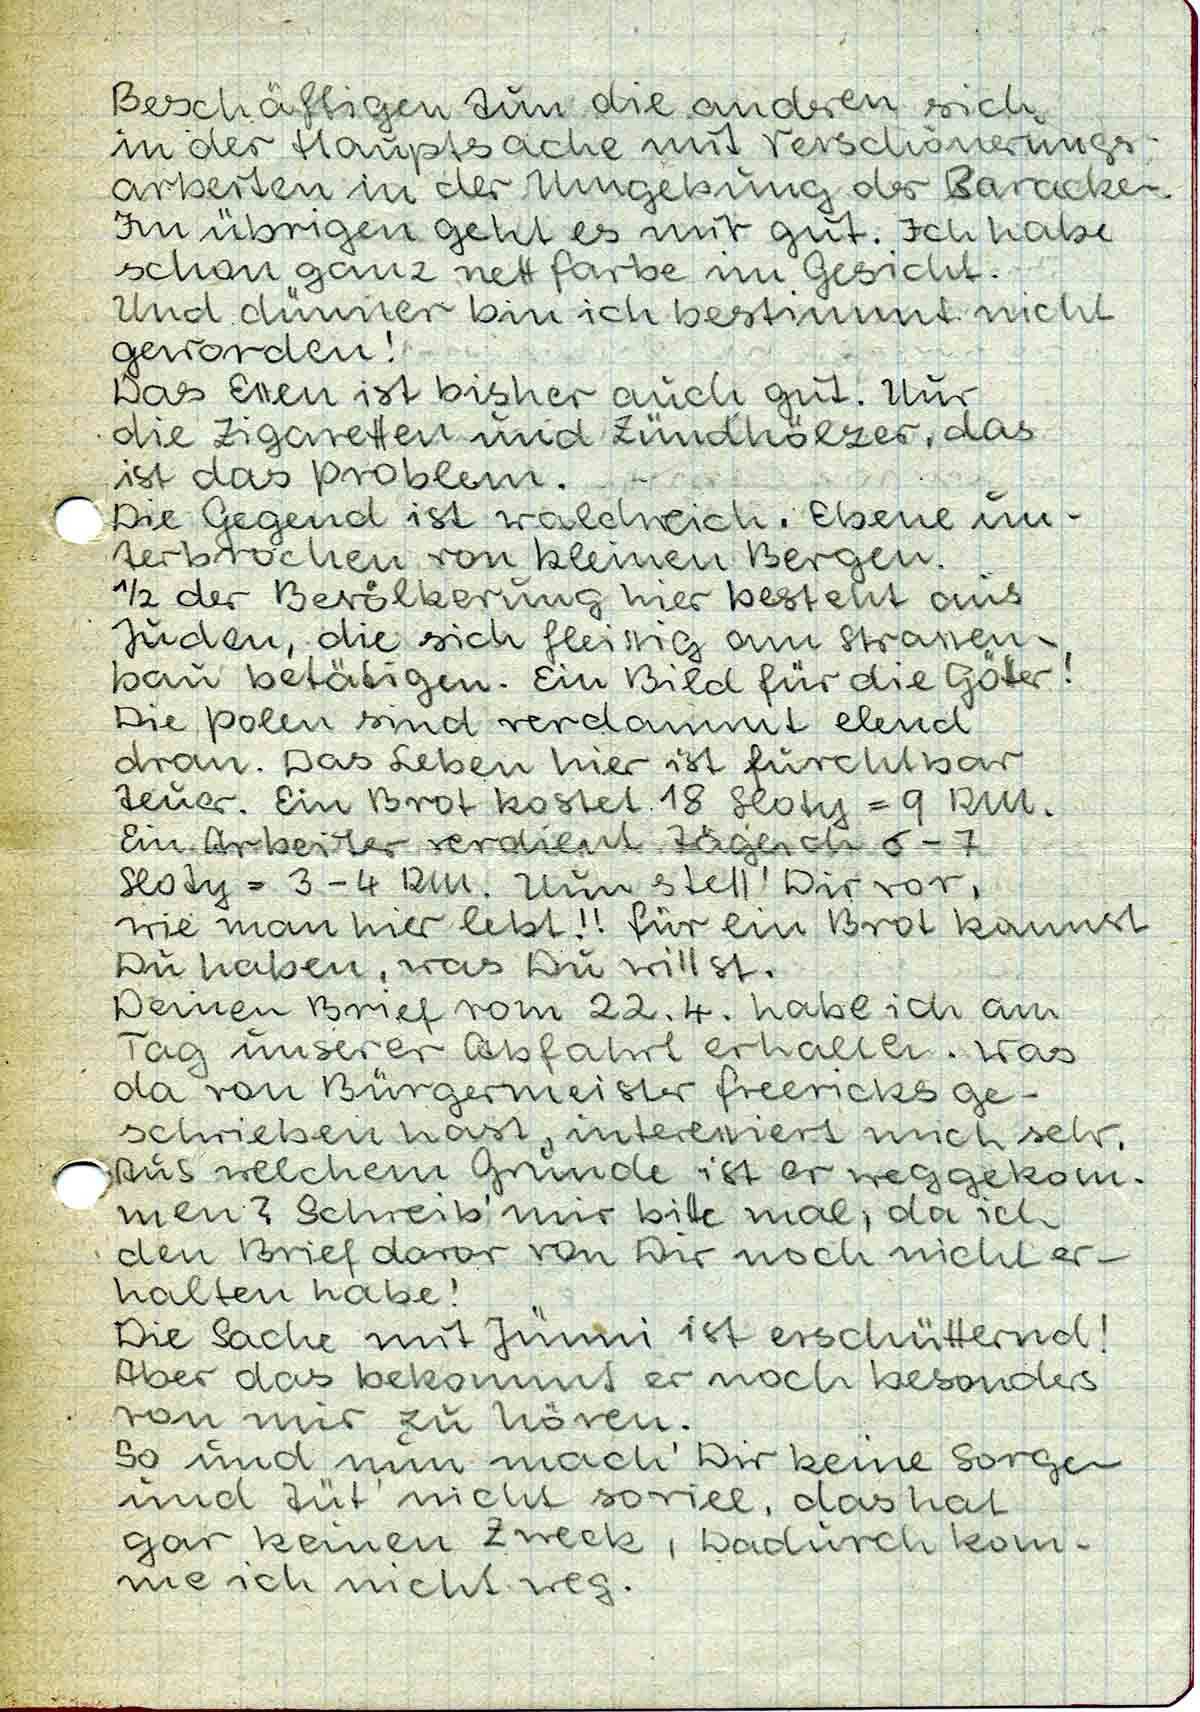 Beschäftigen tun die anderen sich
in der Hauptsache mit Verschönerungs-
arbeiten in der Umgebung der Baracken.
Im übrigen geht es mir gut. Ich habe
schon ganz nett Farbe im Gesicht.
Und dünner bin ich bestimmt nicht
geworden!
Das Essen ist bisher auch gut. Nur
die Zigaretten und Zündhölzer, das
ist das Problem.
Die Gegend ist waldreich. Ebene un-
terbrochen von kleinen Bergen.
1/2 der Bevölkerung hier besteht aus
Juden, die sich fleissig am Strassen-
bau betätigen. Ein Bild für die Götter!
Die Polen sind verdammt elend
dran. Das Leben hier ist furchtbar
teuer. Ein Brot kostet 18 Sloty = 9 RM.
Ein Arbeiter verdient täglich 6 – 7
Sloty = 3 – 4 RM. Nun stell' Dir vor,
wie man hier lebt!! Für ein Brot kannst
Du haben, was Du willst.
Deinen Brief vom 22.4. habe ich am
Tag unserer Abfahrt erhalten. Was
da von Bürgermeister Freericks ge-
schrieben hast, interessiert mich sehr.
Aus welchem Grunde ist er weggekom-
men? Schreib' mir bitte mal, da ich
den Brief davor von Dir noch nicht er-
halten habe!
Die Sache mit Jünni ist erschütternd!
Aber das bekommt er noch besonders
von mir zu hören.
So und nun mach' Dir keine Sorgen
und tüt' nicht soviel, das hat
gar keinen Zweck, Dadurch kom-
me ich nicht weg.